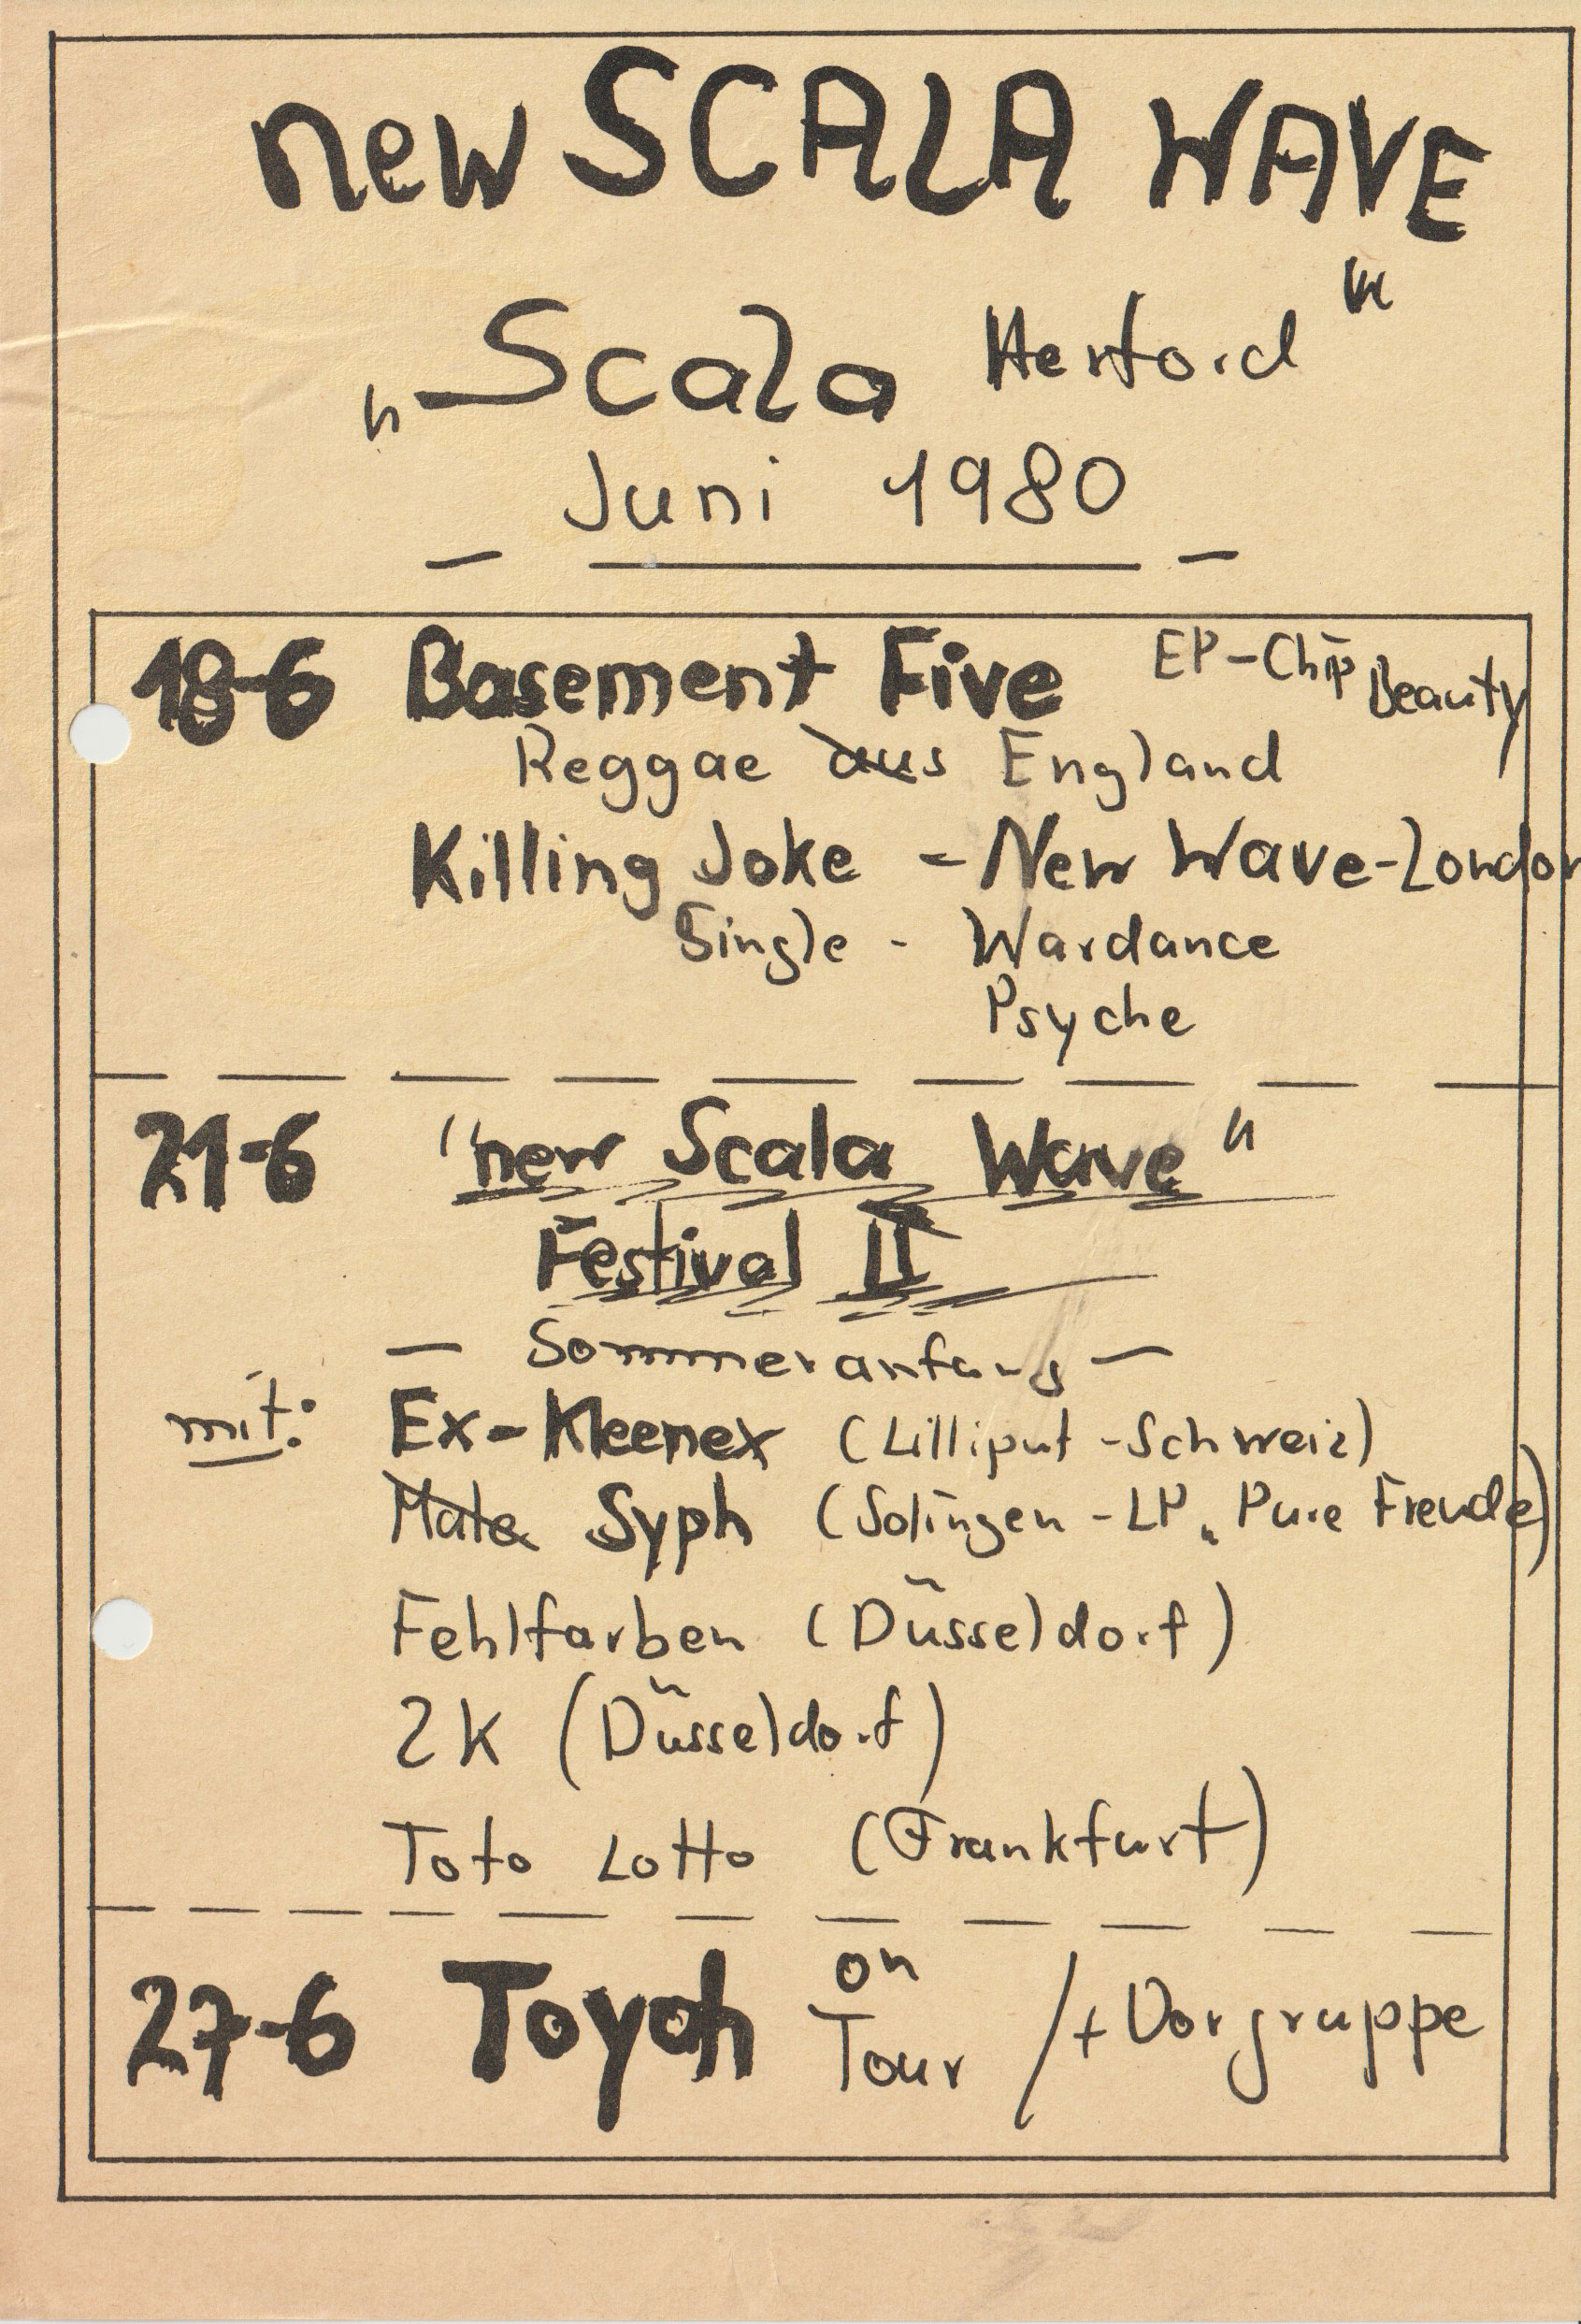 new SCALA WAVE
„Scala Herford"
Juni 1980
18-6 Basement Five EP-Chip Beauty
Reggae aus England
Killing Joke - New Wave-London
Single - Wardance
Psyche
21-6 "new Scala Wave"
Festival II
— Sommeranfang —
mit: Ex-Kleenex (Lilliput-Schweiz)
Male Syph (Solingen-LP „Pure Freude)
Fehlfarben (Düsseldorf)
2K (Düsseldorf)
Toto Lotto (Frankfurt)
27-6 Toyah on Tour /+Vorgruppe